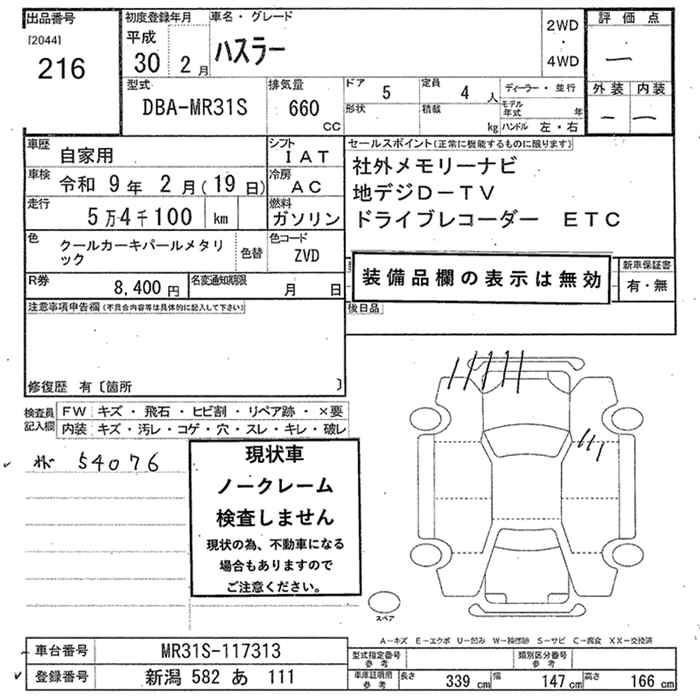 出品番号
[2044]
216
初度登録年月
平成
30 2 月
車名・グレード
ハスラー
2WD
・
4WD
評 価 点
一
外 装 内 装
一 一
型式
DBA-MR31S
排気量
660
CC
ドア 5
定員 4 人
形状
積載 kg
ディーラー・並行
モデル年式 年
ハンドル 左・右
車歴
自家用
シフト
I A T
車検 令和 9 年 2 月 ( 19 日)
冷房
A C
走行
5 万 4 千 100 km
燃料
ガソリン
セールスポイント(正常に機能するものに限ります)
社外メモリーナビ
地デジD-TV
ドライブレコーダー ETC
色
クールカーキパールメタリ
ック
色替
色コード
ZVD
装備品欄の表示は無効
新車保証書
有・無
R券
8,400 円
名変通知期限
月 日
後日品
注意事項申告欄(不具合内容等は具体的に記入して下さい)
修復歴 有〔箇所 〕
検査員
記入欄
FW キズ・飛石・ヒビ割・リペア跡・×要
内装 キズ・汚レ・コゲ・穴・スレ・キレ・破レ
54076
現状車
ノークレーム
検査しません
現状の為、不動車になる
場合もありますので
ご注意ください。
スペア
A-キズ E-エクボ U-凹み W-補修跡 S-サビ C-腐食 XX-交換済
車台番号 MR31S-117313
型式指定番号
参 考
類別区分番号
参 考
登録番号 新潟 582 あ 111
車庫証明用
参 考
長さ 339 cm
幅 147 cm
高さ 166 cm